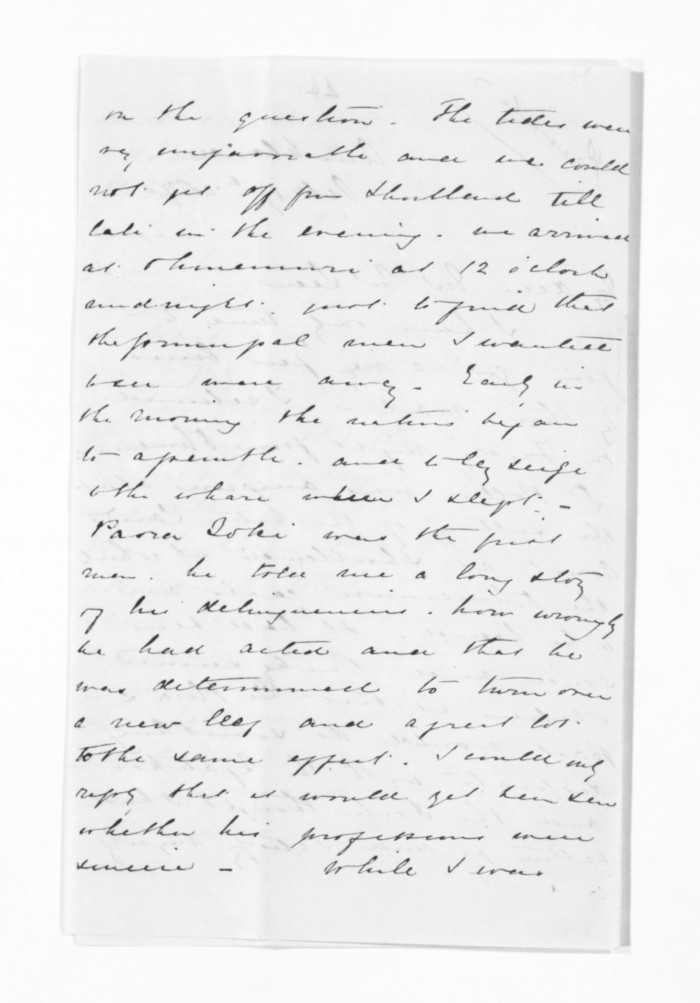 on the question. The tides were
very unfavorable and we could
not get off from Shortland till
late in the evening. we arrived
at Ohinemuri at 12 o'clock
midnight. just to find that
the principal men I wanted
to see were away. Early in
the morning the natives began
to assemble. and to lay seige
to the whare where I slept. -
Paora Toki was the first
man. he told me a long story
of his delinquencies. how wrongly
he had acted and that he
was determined to turn over
a new leaf and a great lot
to the same effect. I could only
reply that it would be seen
whether his professions were
sincere - While I was